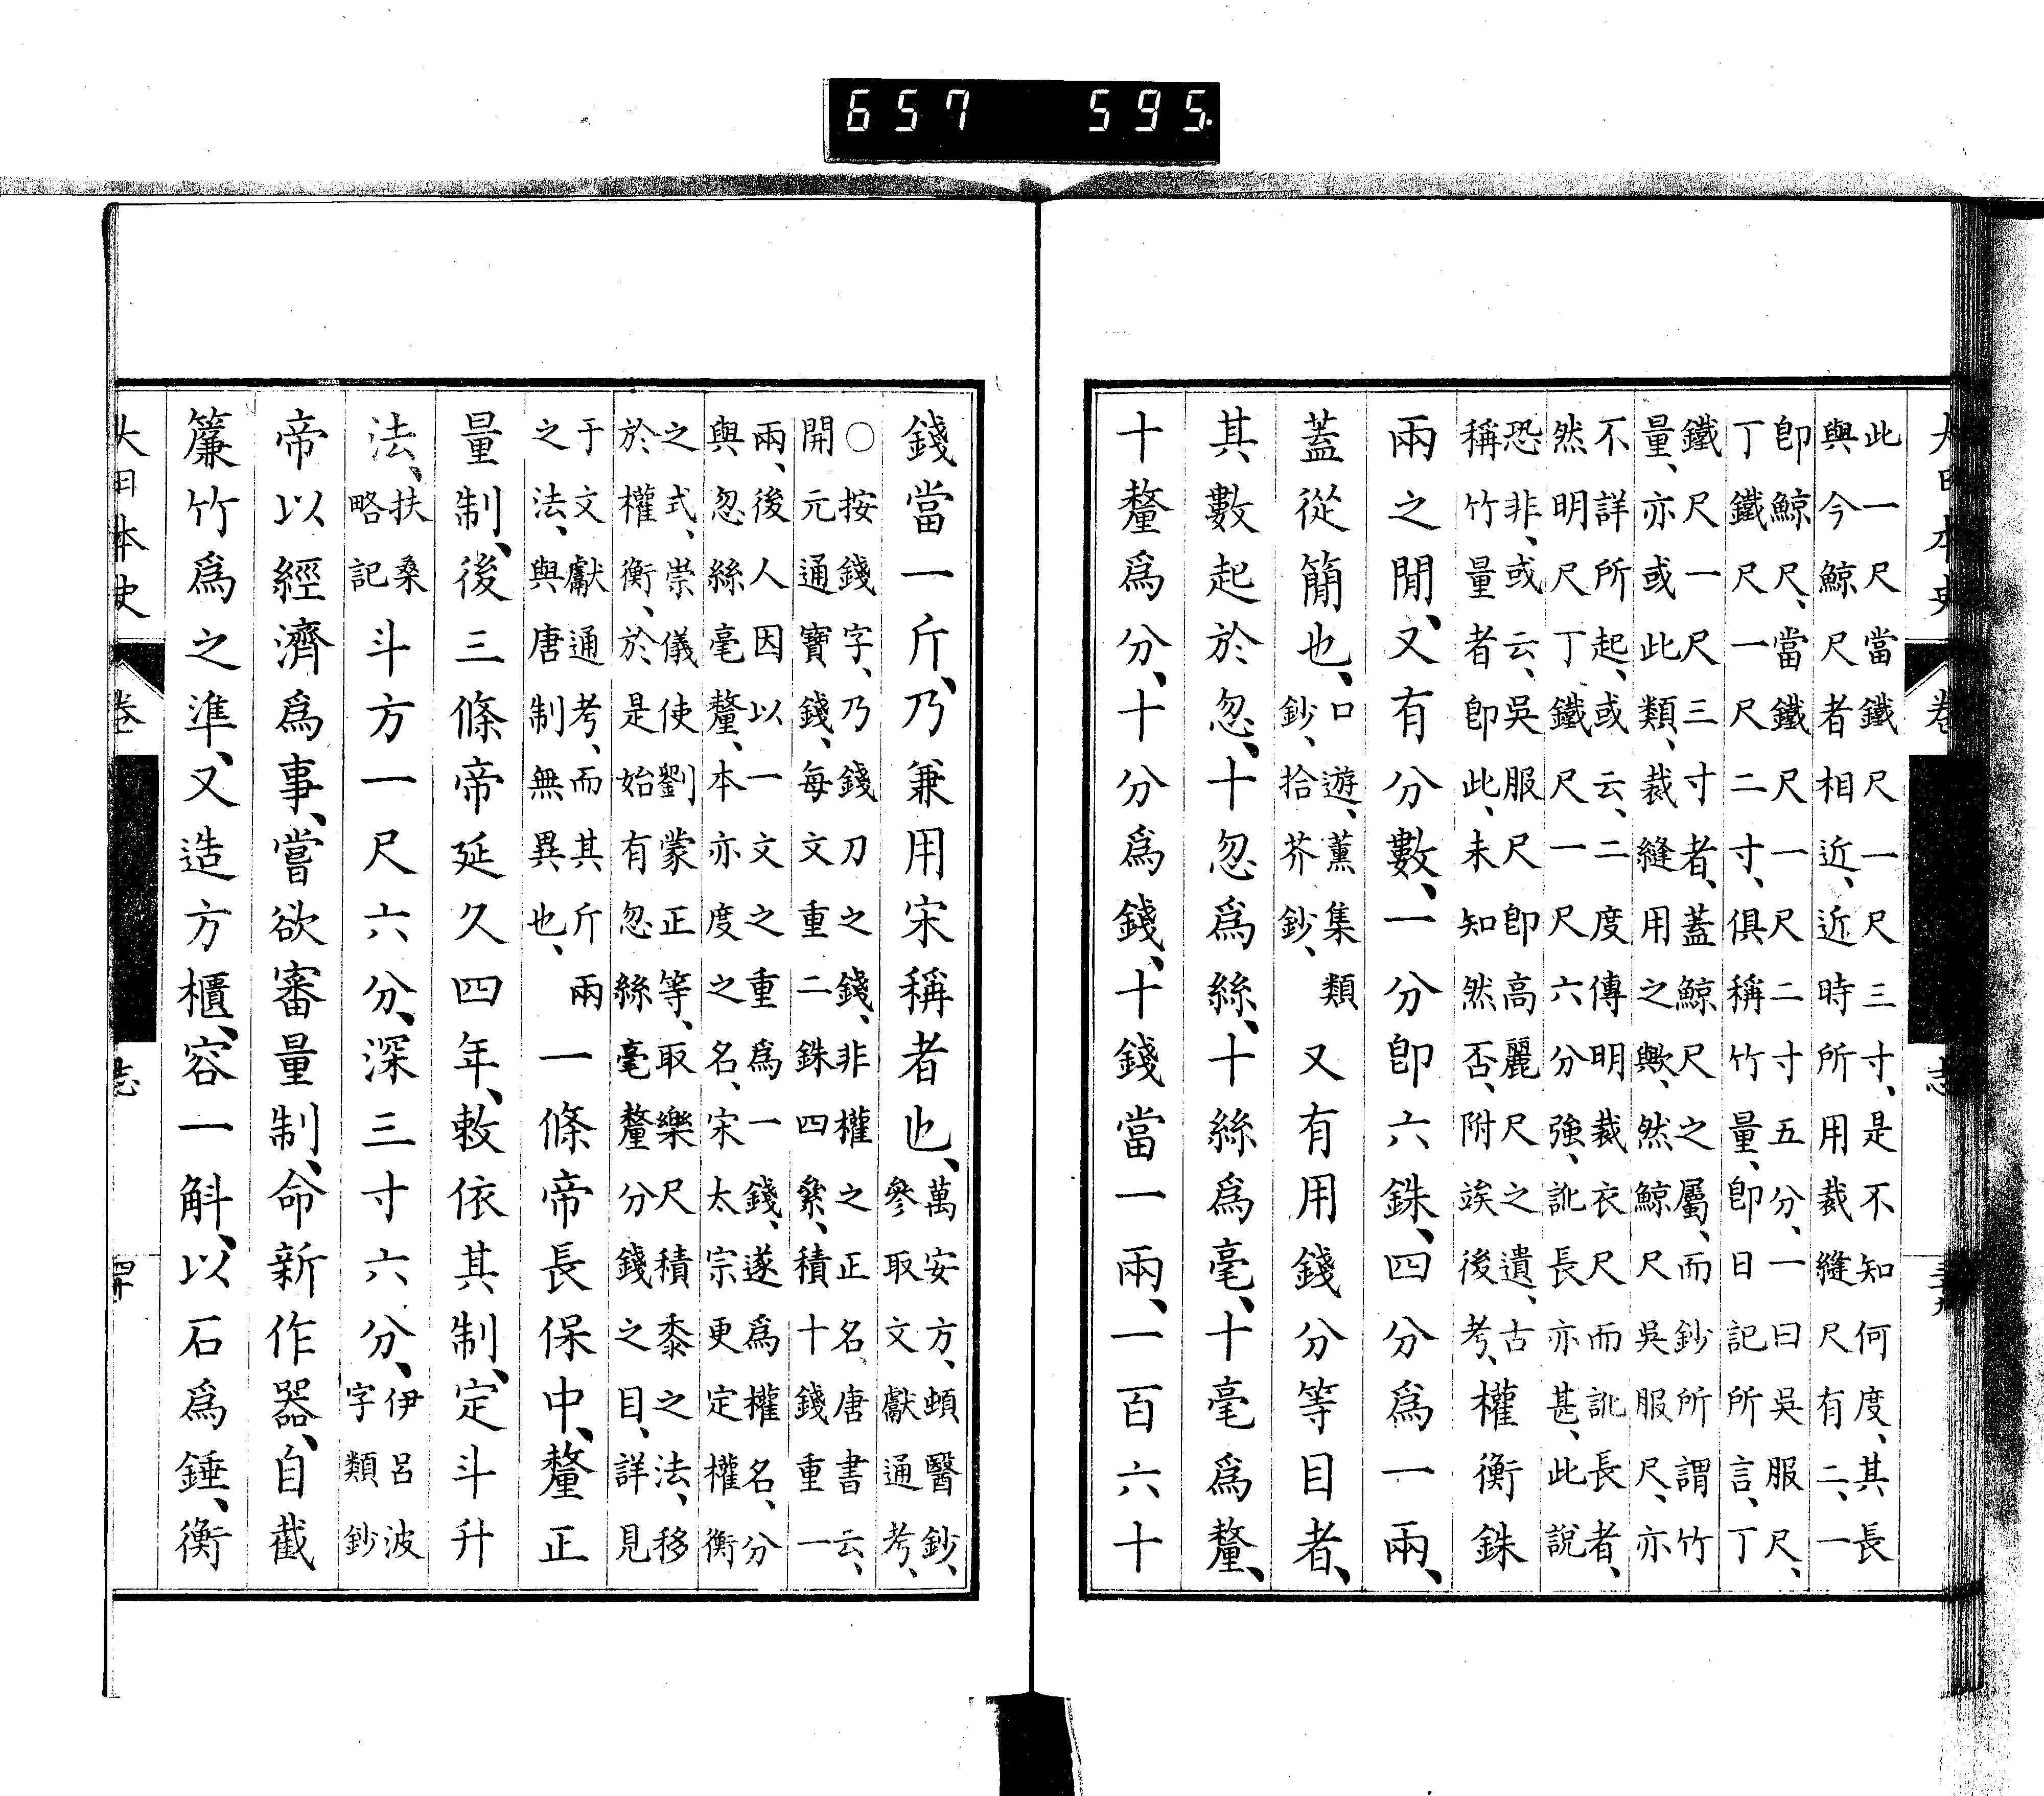 大日本史 卷 志
此一尺當鐵尺一尺三寸、是不知何度、其長
與今鯨尺者相近、近時所用裁縫尺有二、一
卽鯨尺、當鐵尺一尺二寸五分、一曰吳服尺、
丁鐵尺一尺二寸、俱稱竹量、卽日記所言、丁
鐵尺一尺三寸者、蓋鯨尺之屬、而鈔所謂竹
量、亦或此類、裁縫用之歟、然鯨尺吳服尺、亦
不詳所起、或云、二度傳明裁衣尺而訛長者、
然明尺丁鐵尺一尺六分強、訛長亦甚、此說
恐非、或云、吳服尺卽高麗尺之遺、古
稱竹量者卽此、未知然否、附竢後考、
權衡銖
兩之閒、又有分數、一分卽六銖、四分爲一兩、
蓋從簡也、
口遊、薰集類
鈔、拾芥鈔、
又有用錢分等目者、
其數起於忽、十忽爲絲、十絲爲毫、十毫爲釐、
十釐爲分、十分爲錢、十錢當一兩、一百六十
錢當一斤、乃兼用宋稱者也、
萬安方、頓醫鈔、
參取文獻通考、
○按錢字、乃錢刀之錢、非權之正名、唐書云、
開元通寶錢、每文重二銖四絫、積十錢重一
兩、後人因以一文之重爲一錢、遂爲權名、分
與忽絲毫釐、本亦度之名、宋太宗更定權衡
之式、崇儀使劉蒙正等、取樂尺積黍之法、移
於權衡、於是始有忽絲毫釐分錢之目、詳見
于文獻通考、而其斤兩
之法、與唐制無異也、
一條帝長保中、釐正
量制、後三條帝延久四年、敕依其制、定斗升
法、
扶桑
略記
斗方一尺六分、深三寸六分、
伊呂波
字類鈔
帝以經濟爲事、嘗欲審量制、命新作器、自截
簾竹爲之準、又造方櫃、容一斛、以石爲錘、衡
大日本史 卷 志
657 595.